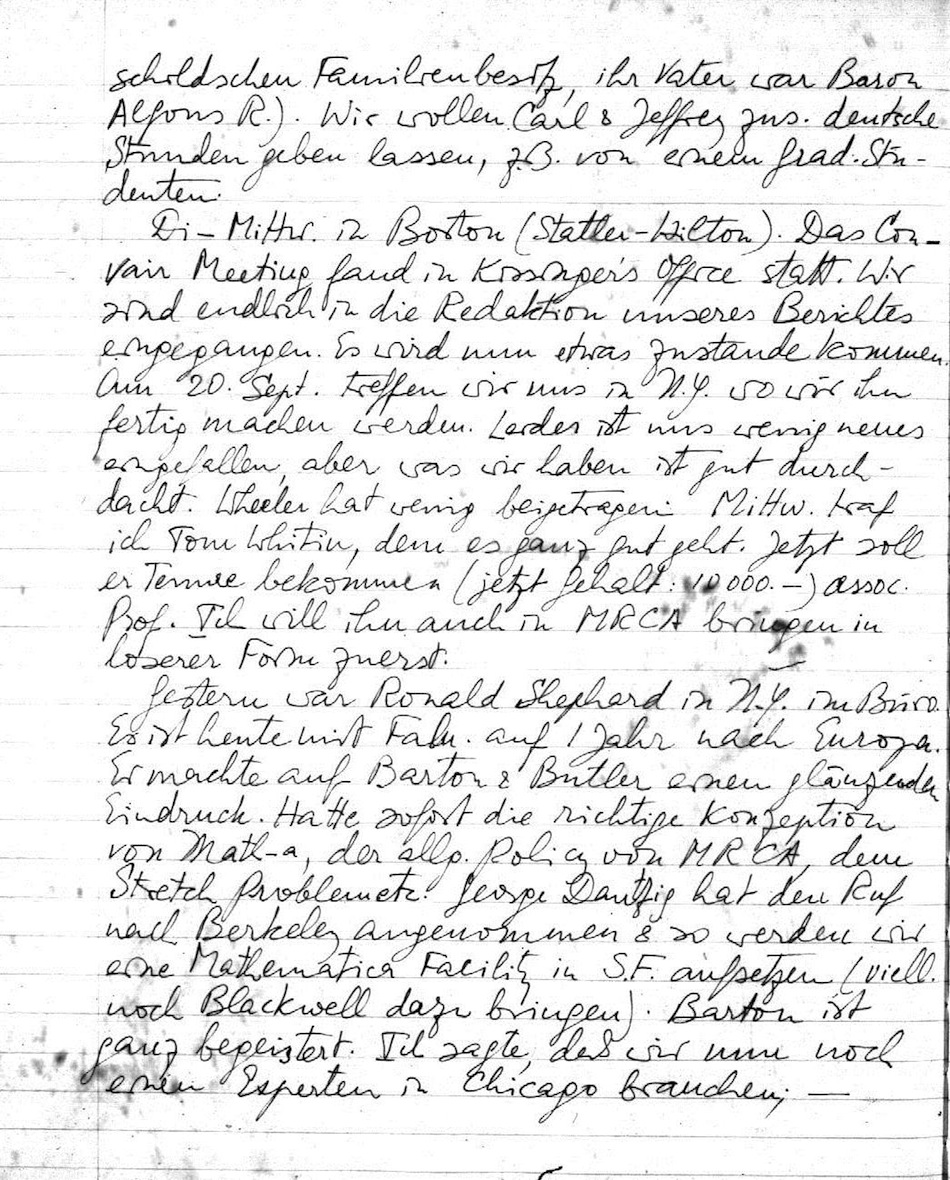 schildschen Familienbesitz, ihr Vater war Baron
Alfons R.). Wir wollen Carl & Jeffrey zus. deutsche
Stunden geben lassen, z.B. von einem grad. Stu-
denten.
Di – Mittw. in Boston (Statler-Hilton). Das Con-
vair Meeting fand in Kissinger's Office statt. Wir
sind endlich in die Redaktion unseres Berichtes
eingegangen. Es wird nun etwas zustande kommen.
Am 20. Sept. treffen wir uns in N.Y. wo wir ihn
fertig machen werden. Leider ist uns wenig neues
eingefallen, aber was wir haben ist gut durch-
dacht. Wheeler hat wenig beigetragen. Mittw. traf
ich Tom Whitin, dem es ganz gut geht. Jetzt soll
er Tenure bekommen (jetzt Gehalt: 10 000.–) assoc.
Prof. Ich will ihn auch in MRCA bringen in
loserer Form zuerst. –
Gestern war Ronald Shephard in N.Y. im Büro.
Er ist heute mit Fam. auf 1 Jahr nach Europa.
Er machte auf Barton & Butler einen glänzenden
Eindruck. Hatte sofort die richtige Konzeption
von Math-a, der allg. Policy von MRCA, dem
Stretch Problem etc. George Dantzig hat den Ruf
nach Berkeley angenommen & so werden wir
eine Mathematica Facility in S.F. aufsetzen (viell.
noch Blackwell dazu bringen). Barton ist
ganz begeistert. Ich sagte, daß wir nun noch
einen Experten in Chicago brauchen; —